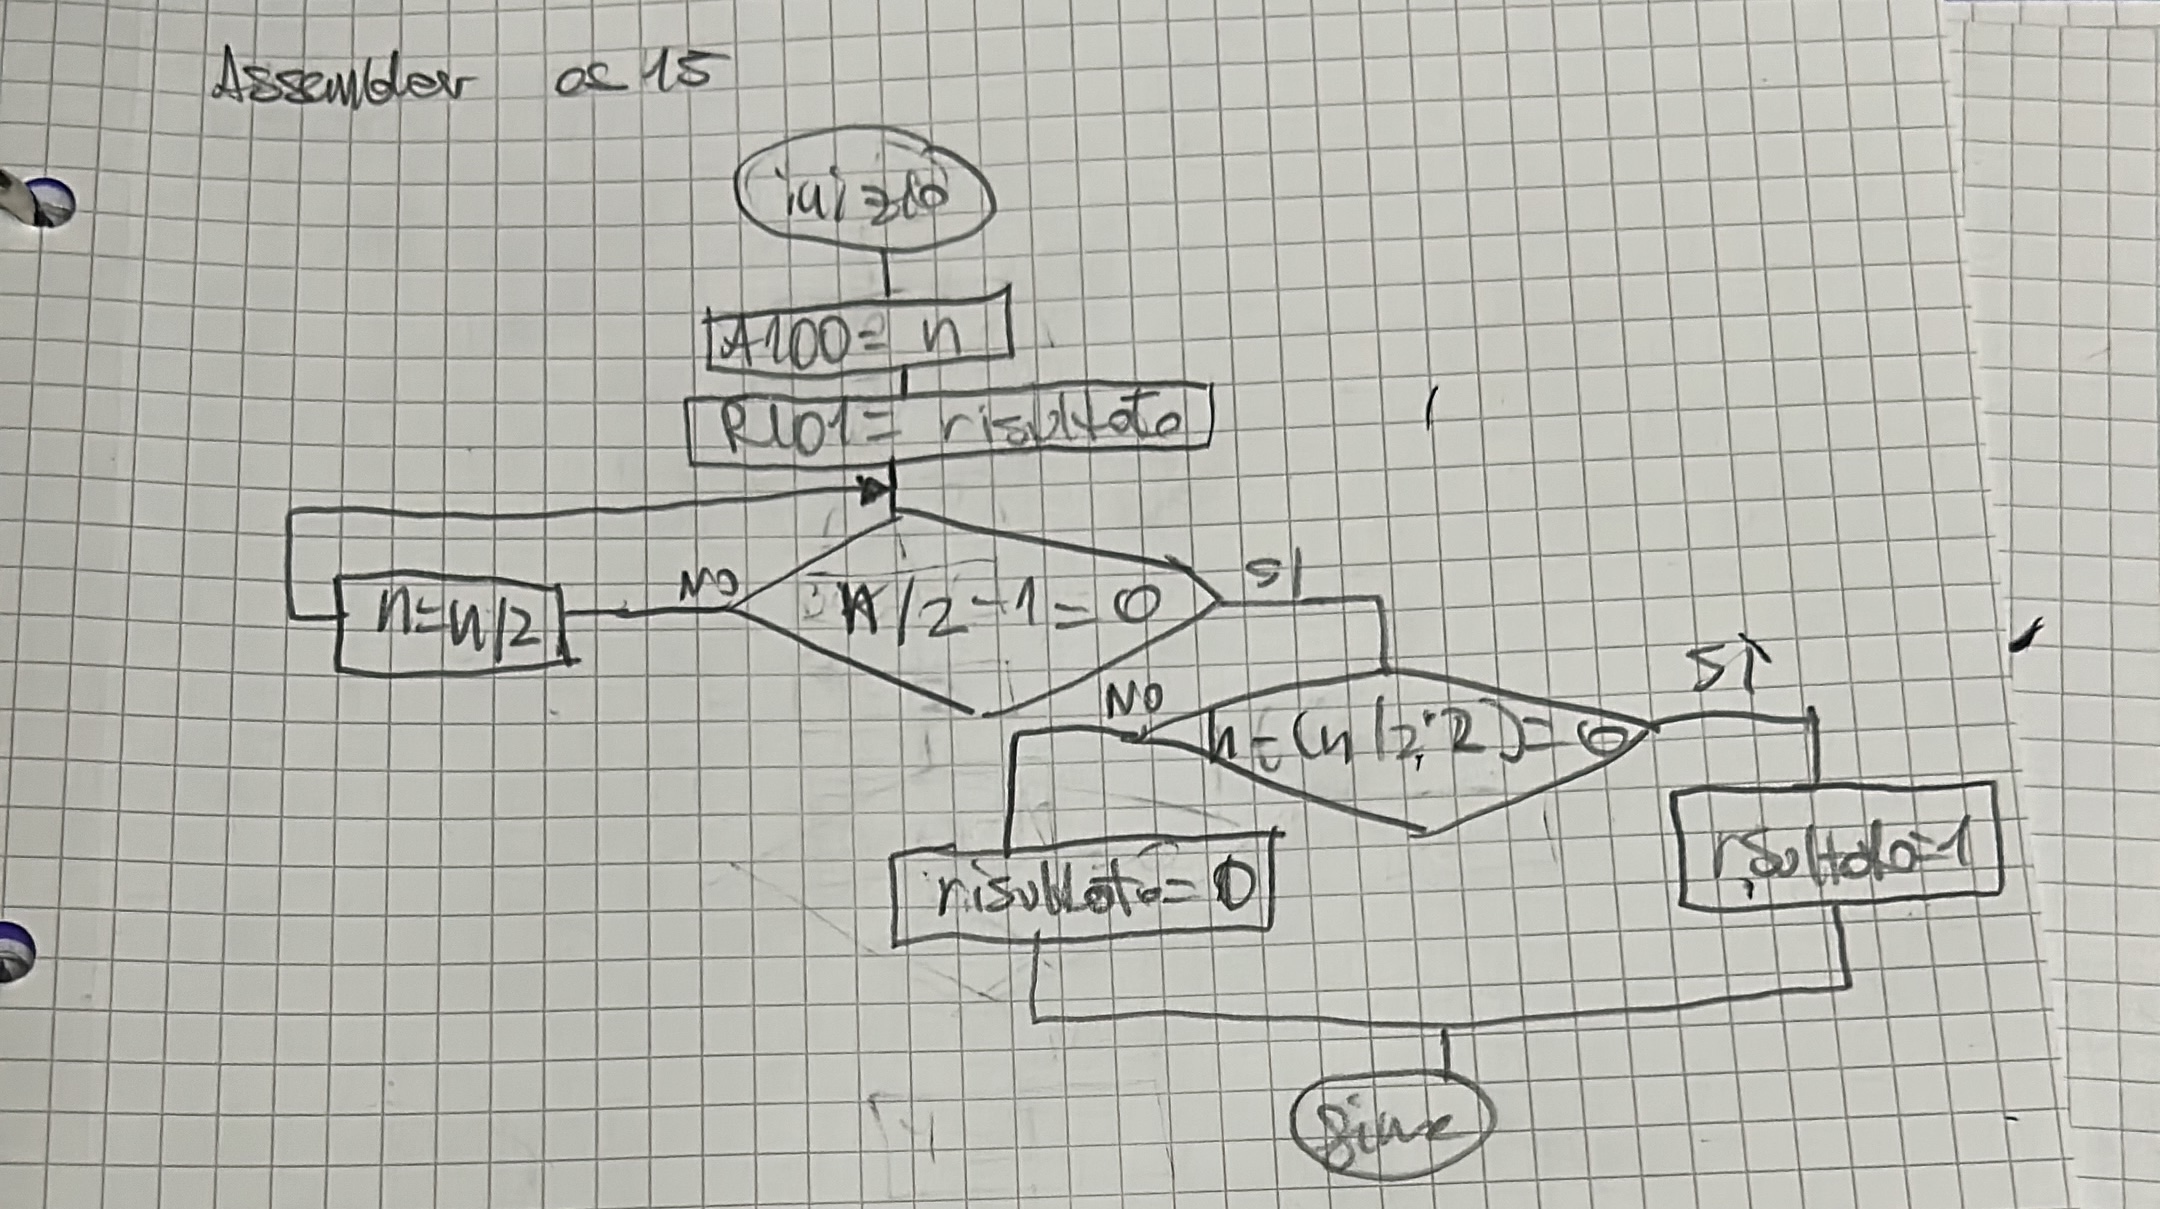 Assembler es 15
inizio
A100= n
R101= risultato
NO n/2-1=0 SI
n=n/2
SÌ
NO n-(n/2*2)=0
risultato=1
risultato=0
fine